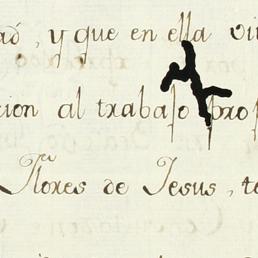 ad, y que en ella vi
cion al trabajo pro
Flores de Jesus, te